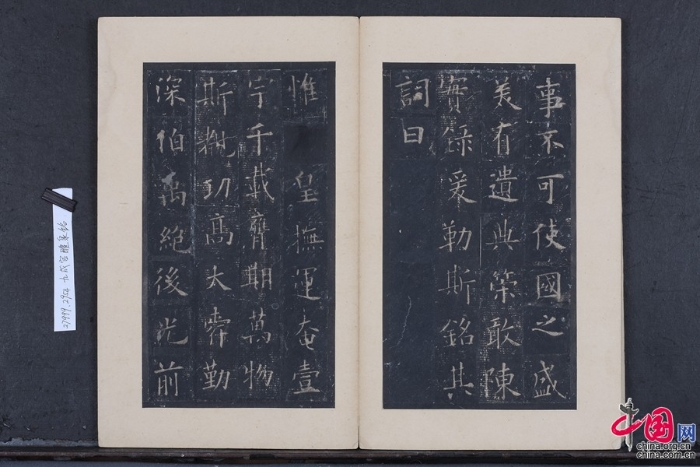 事不可使國之盛
美有遺典策敢陳
實錄爰勒斯銘其
詞曰
惟 皇撫運奄壹
宇千載膺期萬物
斯覩功高大舜勤
深伯禹絕後光前
中国网
china.org.cn
china.com.cn